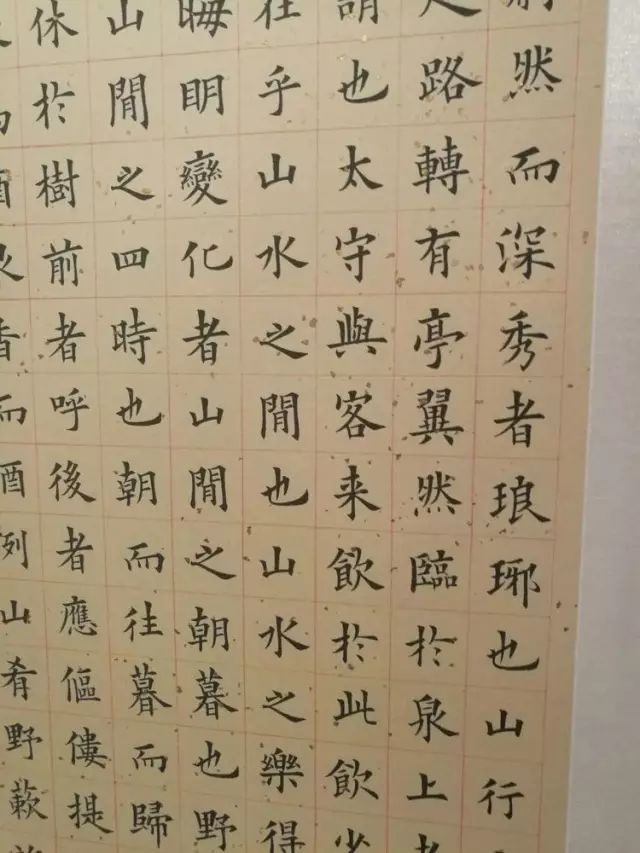 然而深秀者琅琊也山行
路轉有亭翼然臨於泉上者
謂也太守與客来飲於此飲少
在乎山水之閒也山水之樂得
晦眀變化者山閒之朝暮也野
山閒之四時也朝而往暮而歸
休於樹前者呼後者應傴僂提
酒泉香而酒洌山肴野蔌